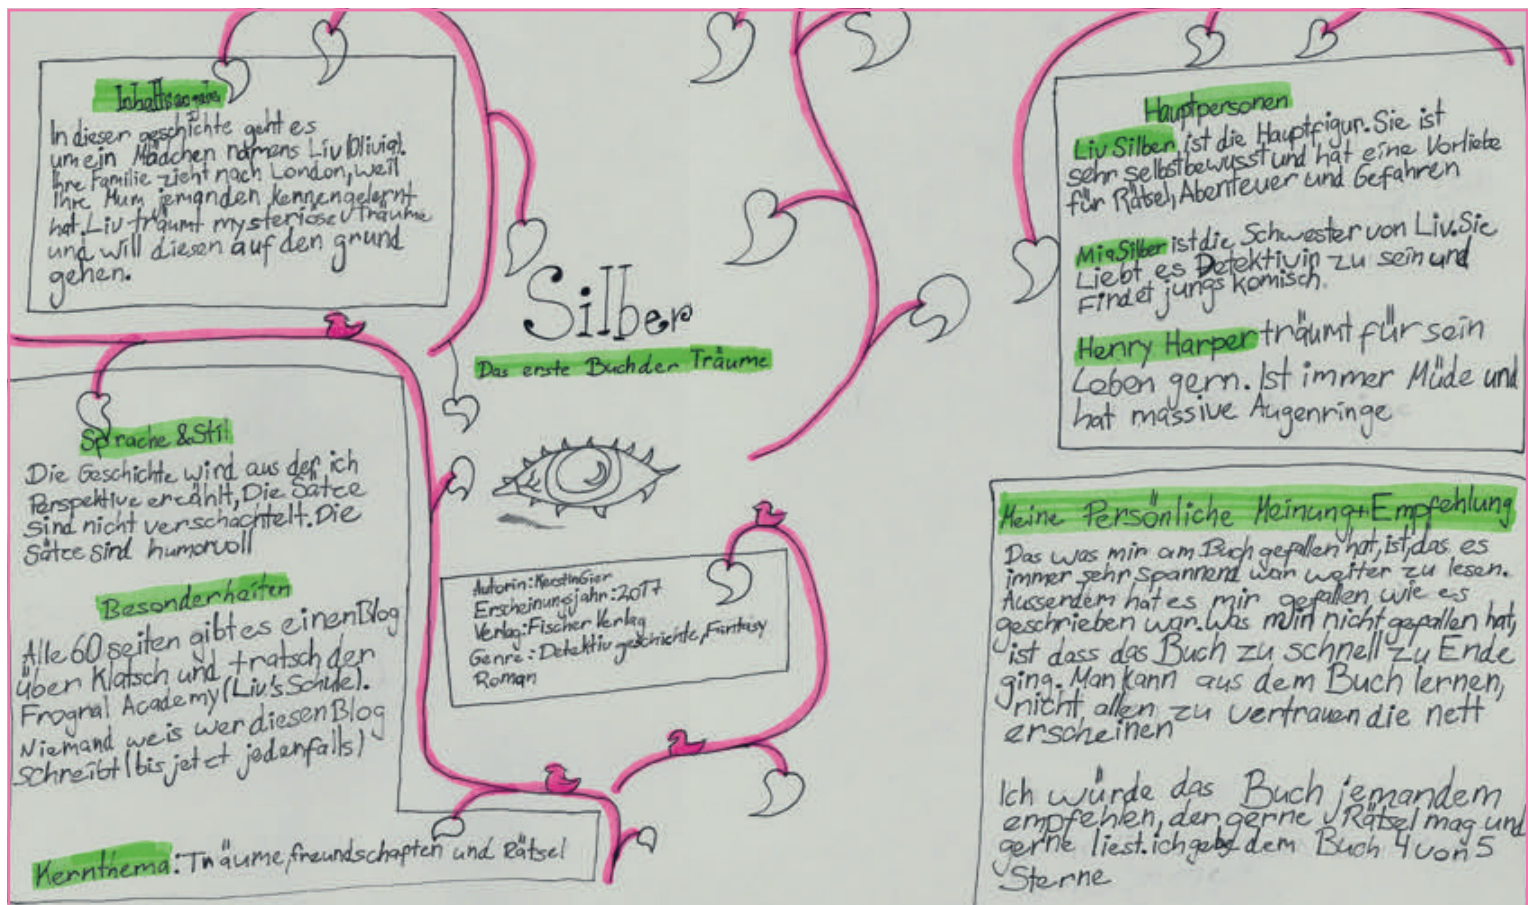 Inhaltsangabe
In dieser geschichte geht es
um ein Mädchen namens Liv (Olivia).
Ihre Familie zieht nach London, weil
Ihre Mum jemanden kennengelernt
hat. Liv träumt mysteriöse Träume
und will diesen auf den grund
gehen.
Sprache & Stil
Die Geschichte wird aus der ich
Perspektive erzählt, Die Sätze
sind nicht verschachtelt. Die
Sätze sind humorvoll
Besonderheiten
Alle 60 seiten gibt es einen Blog
über Klatsch und tratsch der
Frognal Academy (Liv's Schule).
Niemand weis wer diesen Blog
schreibt (bis jetzt jedenfalls)
Kernthema: Träume, freundschaften und Rätsel
Silber
Das erste Buch der Träume
Autorin: Kerstin Gier
Erscheinungsjahr: 2017
Verlag: Fischer Verlag
Genre: Detektivgeschichte, Fantasy
Roman
Hauptpersonen
Liv Silber ist die Hauptfigur. Sie ist
sehr selbstbewusst und hat eine Vorliebe
für Rätsel, Abenteuer und Gefahren
Mia Silber ist die Schwester von Liv. Sie
Liebt es Detektivin zu sein und
Findet jungs komisch.
Henry Harper träumt für sein
Leben gern. Ist immer Müde und
hat massive Augenringe
Meine Persönliche Meinung + Empfehlung
Das was mir am Buch gefallen hat, ist, das es
immer sehr spannend war weiter zu lesen.
Aussendem hat es mir gefallen wie es
geschrieben war. Was mir nicht gefallen hat,
ist dass das Buch zu schnell zu Ende
ging. Man kann aus dem Buch lernen,
nicht allen zu vertrauen die nett
erscheinen
Ich würde das Buch jemandem
empfehlen, der gerne Rätsel mag und
gerne liest. ich gebe dem Buch 4 von 5
Sterne